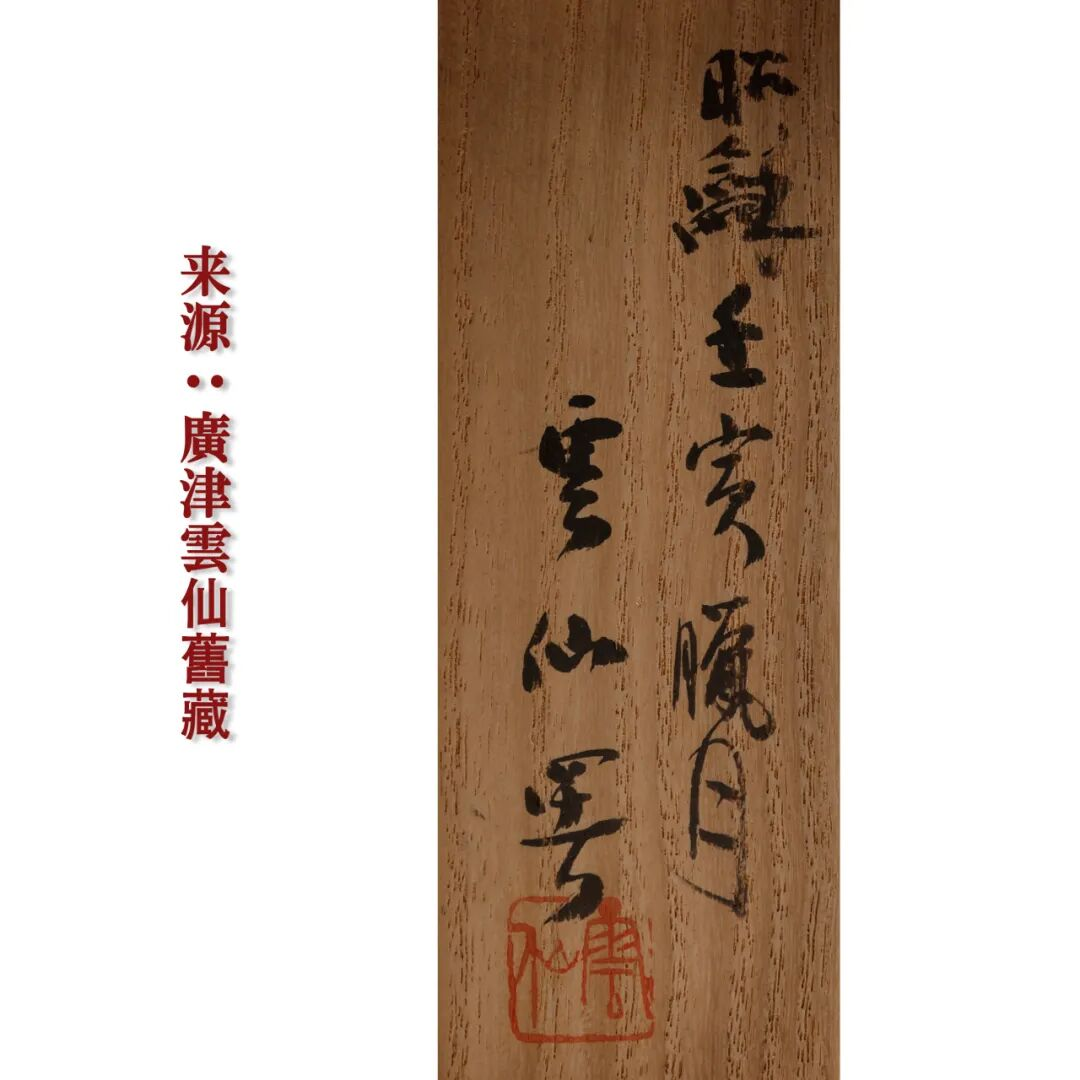 昭龢壬寅臘月
雲仙署
雲仙
来源：廣津雲仙舊藏